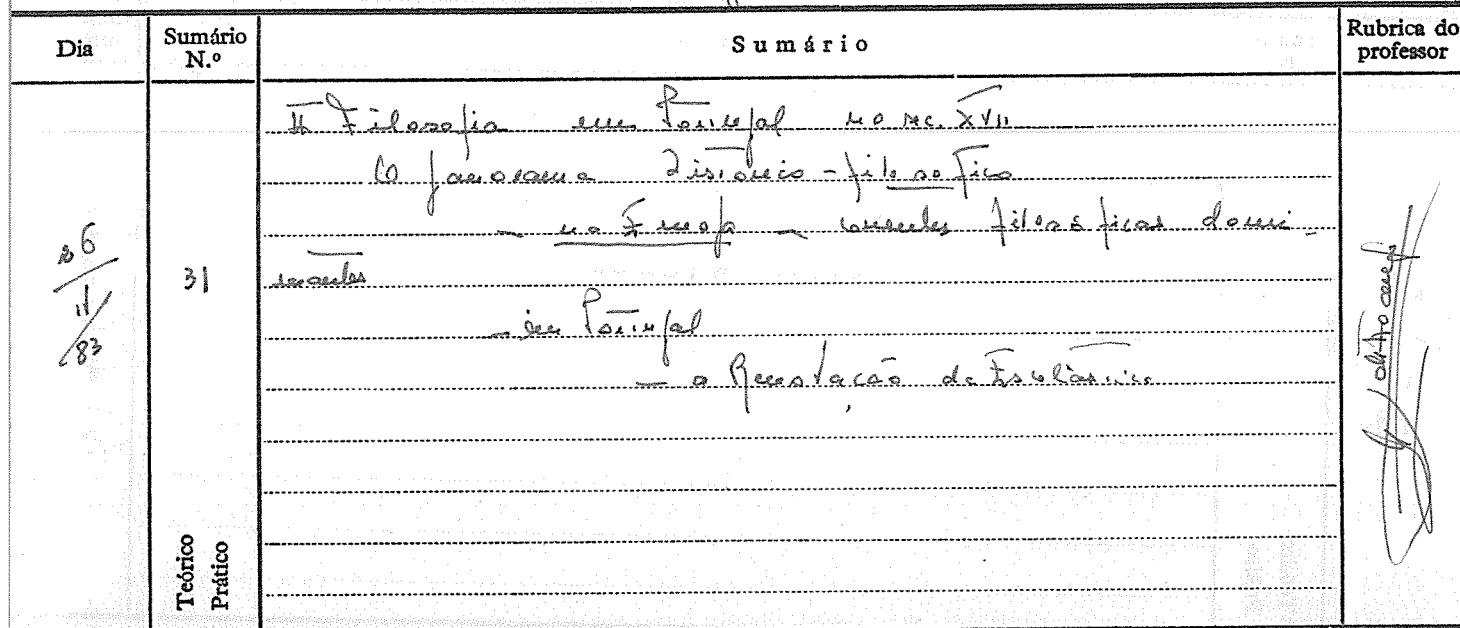 Dia
Sumário
N.º
Sumário
Rubrica do
professor
26
11
83
31
II Filosofia em Portugal no sec. XVII
O panorama Historico-filosofico
- na Europa - correntes filosóficas domi-
nantes
- em Portugal
- a Renovação da Escolástica
Teórico
Prático